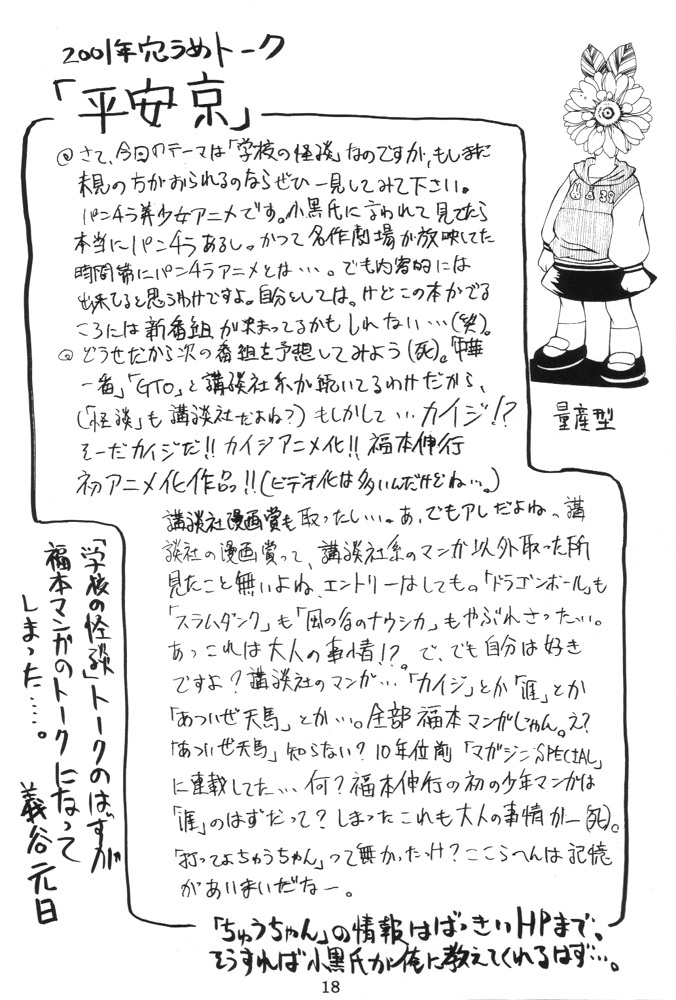 2001年穴うめトーク
「平安京」
◎さて、今回のテーマは「学校の怪談」なのですが、もしまだ
未見の方がおられるのならぜひ一見してみて下さい。
パンチラ美少女アニメです。小黒氏に言われて見てたら
本当にパンチラあるし。かつて名作劇場が放映してた
時間帯にパンチラアニメとは…。でも内容的には
出来てると思うわけですよ。自分としては。けどこの本がでる
ころには新番組が決まってるかもしれない…(笑)。
◎どうせだから次の番組を予想してみよう(死)。「中華
一番」「GTO」と講談社系が続いてるわけだから、
(「怪談」も講談社だよね?)もしかして…カイジ!?
そーだカイジだ!!カイジアニメ化!!福本伸行
初アニメ化作品っ!!(ビデオ化は多いんだけどね…。)
講談社漫画賞も取ったしい…。あ、でもアレだよね、講
談社の漫画賞って、講談社系のマンガ以外取った所
見たこと無いよね、エントリーはしても。「ドラゴンボール」も
「スラムダンク」も「風の谷のナウシカ」もやぶれさったい…。
あっこれは大人の事情!?。で、でも自分は好き
ですよ?講談社のマンガ…「カイジ」とか「涯」とか
「あついぜ天馬」とか…。全部福本マンガじゃん。え?
「あついぜ天馬」知らない?10年位前「マガジンSPECIAL」
に連載してた…何?福本伸行の初の少年マンガは
「涯」のはずだって?しまったこれも大人の事情かー(死)。
「打ってよちゅうちゃん」って無かったっけ?ここらへんは記憶
があいまいだなー。
「ちゅうちゃん」の情報はばっきぃHPまで。
そうすれば小黒氏が俺に教えてくれるはず…。
「学校の怪談」トークのはずが
福本マンガのトークになって
しまった……。
義谷元日
量産型
18